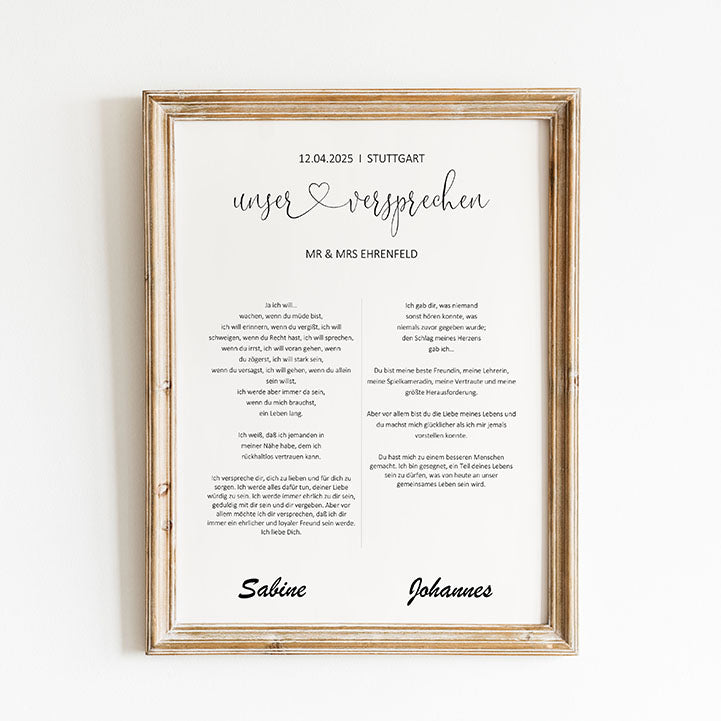 12.04.2025 I STUTTGART
unser versprechen
MR & MRS EHRENFELD
Ja ich will...
wachen, wenn du müde bist,
ich will erinnern, wenn du vergißt, ich will
schweigen, wenn du Recht hast, ich will sprechen,
wenn du irrst, ich will voran gehen, wenn
du zögerst, ich will stark sein,
wenn du versagst, ich will gehen, wenn du allein
sein willst,
ich werde aber immer da sein,
wenn du mich brauchst,
ein Leben lang.
Ich weiß, daß ich jemanden in
meiner Nähe habe, dem ich
rückhaltlos vertrauen kann.
Ich verspreche dir, dich zu lieben und für dich zu
sorgen. Ich werde alles dafür tun, deiner Liebe
würdig zu sein. Ich werde immer ehrlich zu dir sein,
geduldig mit dir sein und dir vergeben. Aber vor
allem möchte ich dir versprechen, daß ich dir
immer ein ehrlicher und loyaler Freund sein werde.
Ich liebe Dich.
Ich gab dir, was niemand
sonst hören konnte, was
niemals zuvor gegeben wurde;
den Schlag meines Herzens
gab ich...
Du bist meine beste Freundin, meine Lehrerin,
meine Spielkameradin, meine Vertraute und meine
größte Herausforderung.
Aber vor allem bist du die Liebe meines Lebens und
du machst mich glücklicher als ich mir jemals
vorstellen konnte.
Du hast mich zu einem besseren Menschen
gemacht. Ich bin gesegnet, ein Teil deines Lebens
sein zu dürfen, was von heute an unser
gemeinsames Leben sein wird.
Sabine
Johannes